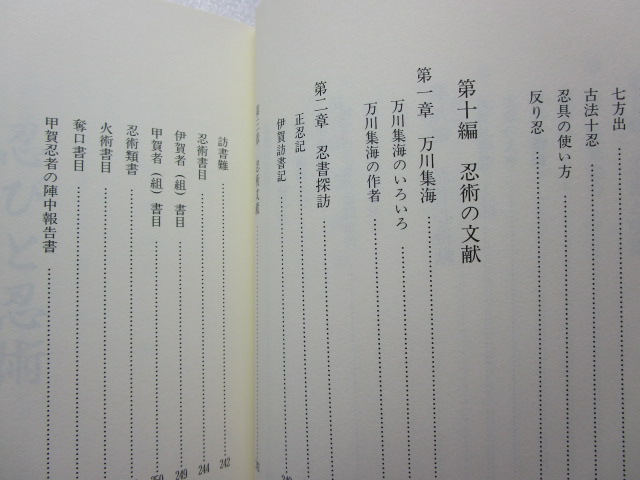 七方出
古法十忍
忍具の使い方
反り忍
第十編 忍術の文献
第一章 万川集海
万川集海のいろいろ
万川集海の作者
第二章 忍書探訪
正忍記
伊賀訪書記
訪書難 242
忍術書目 244
伊賀者(組)書目 249
甲賀者(組)書目
忍術類書
火術書目
奪口書目
甲賀忍者の陣中報告書